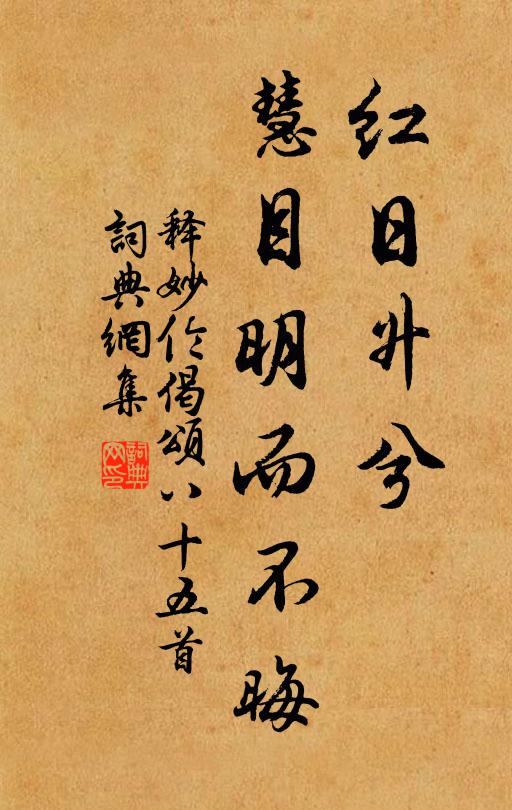 红日升兮
慧目明而不晦
释妙伦偈頌八十五首
詞典網集
詞典網印